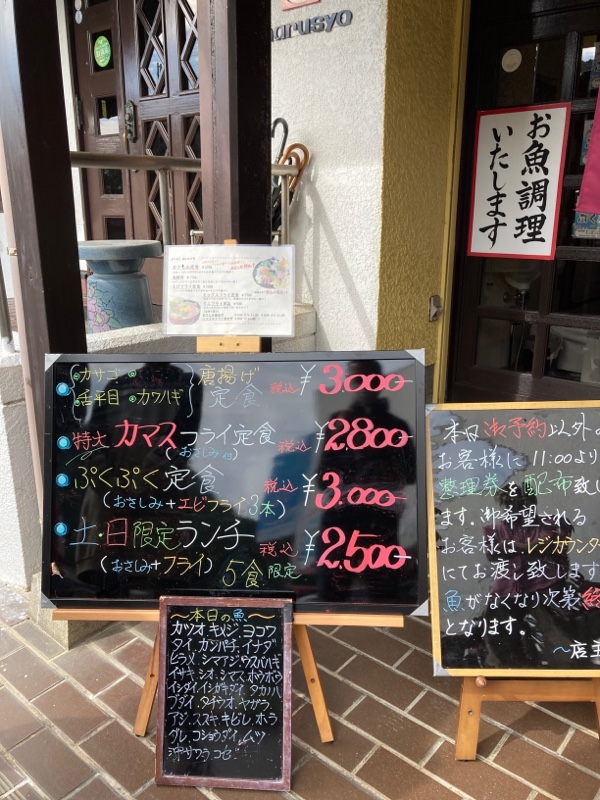 marusyo
お魚調理
いたします
カサゴ
舌平目 カワハギ
唐揚げ
定食 税込 ¥3.000
特大 カマスフライ定食 税込 ¥2.800
(おさしみ付)
ぷくぷく定食 税込 ¥3.000
(おさしみ+エビフライ3本)
土・日限定ランチ 税込 ¥2.500
(おさしみ+フライ) 5食限定
本日 御予約以外の
お客様に 11:00より
整理券を配布致し
ます。御希望される
お客様は レジカウンター
にてお渡し致します
魚がなくなり次第 終
となります。
~店主
~本日の魚~
カツオ.キメジ.ヨコワ
タイ.カンパチ.イナダ
ヒラメ.シマアジ.ウスバハギ
イサキ.シオ.シマス.ホウボウ
イシダイ.イシガキダイ.タカノハ
ブダイ.タイウオ.ヤガラ.
アジ.スズキ.キビレ.ボラ
グレ.コショウダイ.ムツ
沖サワラ コゼ.